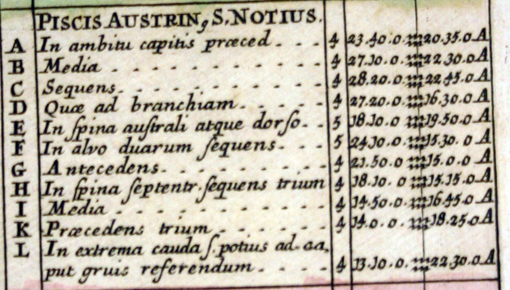 PISCIS AUSTRIN9 S. NOTIUS.
A In ambitu capitis præced . . . 4 23.40.0.♒20.35.0.A
B Media . . . . . . . . 4 27.10.0.♒22.30.0A
C Sequens . . . . . . . . 4 28.20.0.♒22.45.0A
D Quæ ad branchiam . . . . 4 27.20.0♒16.30.0A
E In ſpina auſtrali atque dorſo . . . 5 18.10.0♒19.50.0A
F In alvo duarum ſequens . . . . 5 24.10.0♒15.30.0A
G Antecedens . . . . . . . 4 21.50.0♒15.0.0A
H In ſpina ſeptentr. ſequens trium 4 18.10.0♒15.15.0A
I Media . . . . . . . . . 4 14.50.0♒16.45.0A
K Præcedens trium . . . . . 4 14.0.0.♒18.25.0A
L In extrema cauda ſ. potius ad ca,
put gruis referendum . . . . 4 13.10.0.♒22.30.0A